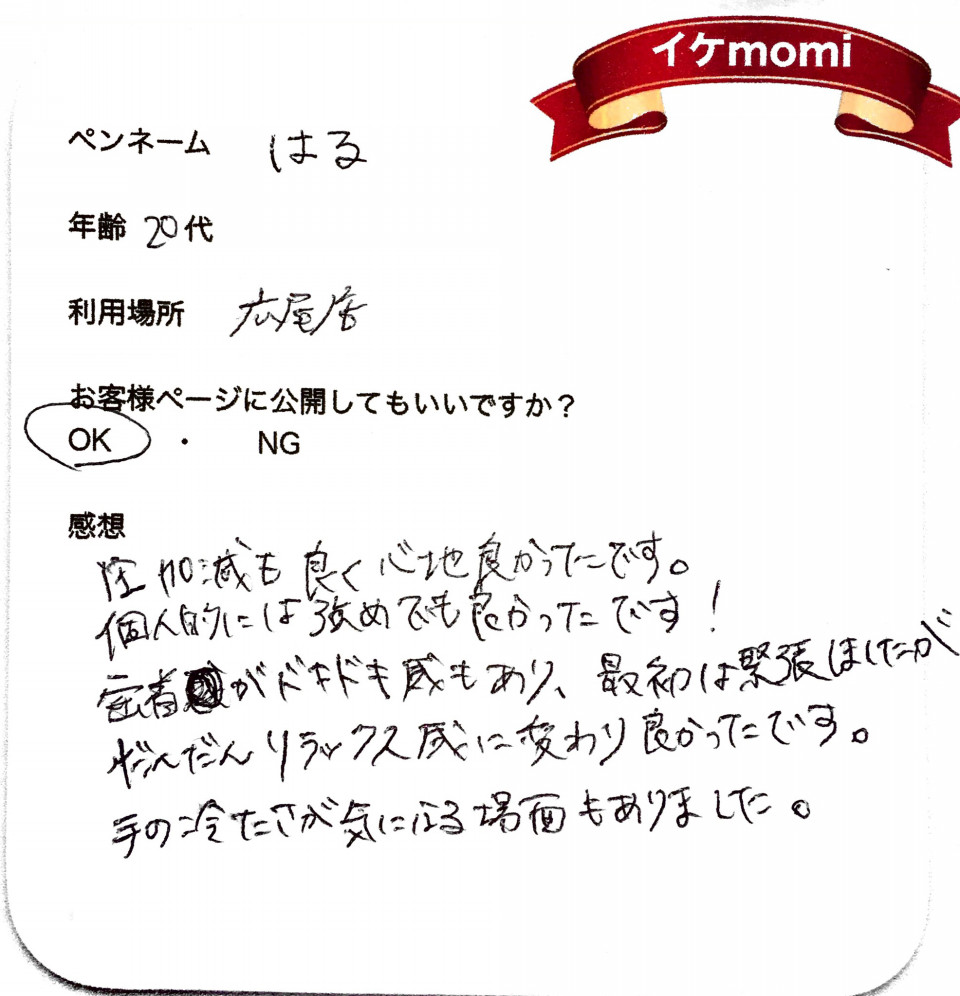 イケmomi
ペンネーム はる
年齢 20代
利用場所 広尾店
お客様ページに公開してもいいですか？
OK ・ NG
感想
圧加減も良く心地良かったです。
個人的には強めでも良かったです！
密着がドキドキ感もあり、最初は緊張しましたが
だんだんリラックス感に変わり良かったです。
手の冷たさが気になる場面もありました。